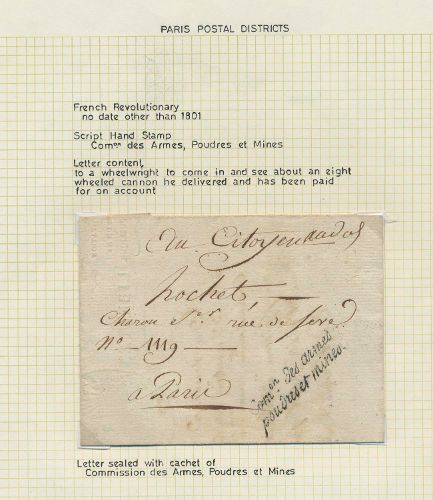 PARIS POSTAL DISTRICTS
French Revolutionary
no date other than 1801
Script Hand Stamp
Comon des Armes, Poudres et Mines
Letter content,
to a wheelwright to come in and see about an eight
wheeled cannon he delivered and has been paid
for on account
Au Citoyen
hochet,
Charon rue de Seve
No 1119
a Paris
Comon des armes
poudres et mines.
Letter sealed with cachet of
Commission des Armes, Poudres et Mines